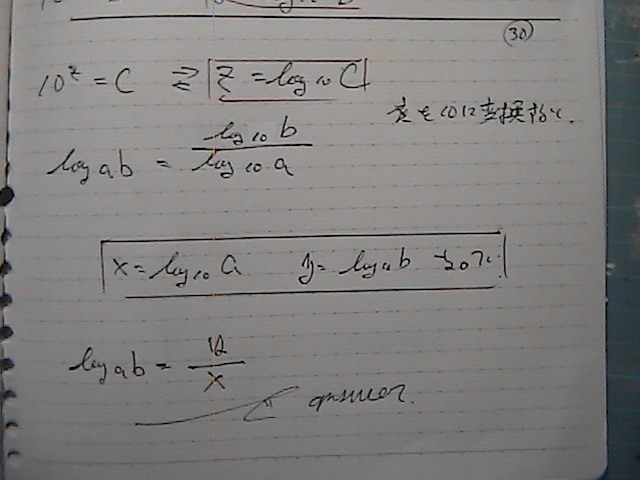 (30)
10^z = C ⇄ z = log10 C
底を10に変換すると.
log a b = log10 b / log10 a
x = log10 a y = log10 b なので
log a b = y / x
answer.